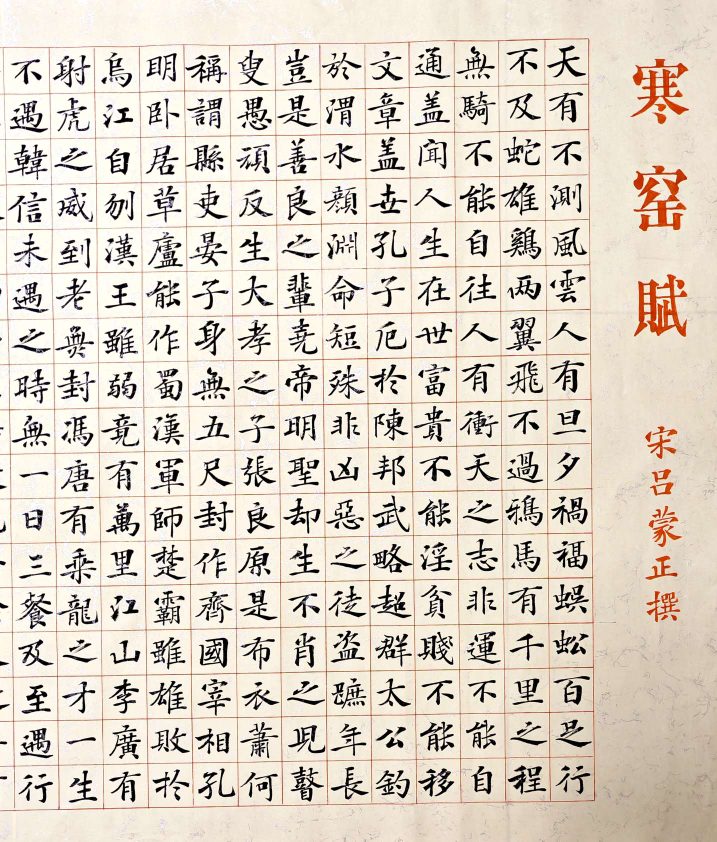 寒窑賦
宋吕蒙正撰
天有不測風雲人有旦夕禍福蜈蚣百足行
不及蛇雄鷄两翼飛不過鴉馬有千里之程
無騎不能自往人有衝天之志非運不能自
通盖聞人生在世富貴不能淫貧賤不能移
文章盖世孔子厄於陳邦武略超群太公釣
於渭水顔淵命短殊非凶惡之徒盗蹠年長
豈是善良之輩堯帝明聖却生不肖之児瞽
叟愚頑反生大孝之子張良原是布衣蕭何
稱謂縣吏晏子身無五尺封作齊國宰相孔
明卧居草廬能作蜀漢軍師楚霸雖雄敗於
烏江自刎漢王雖弱竟有萬里江山李廣有
射虎之威到老無封馮唐有乘龍之才一生
不遇韓信未遇之時無一日三餐及至遇行